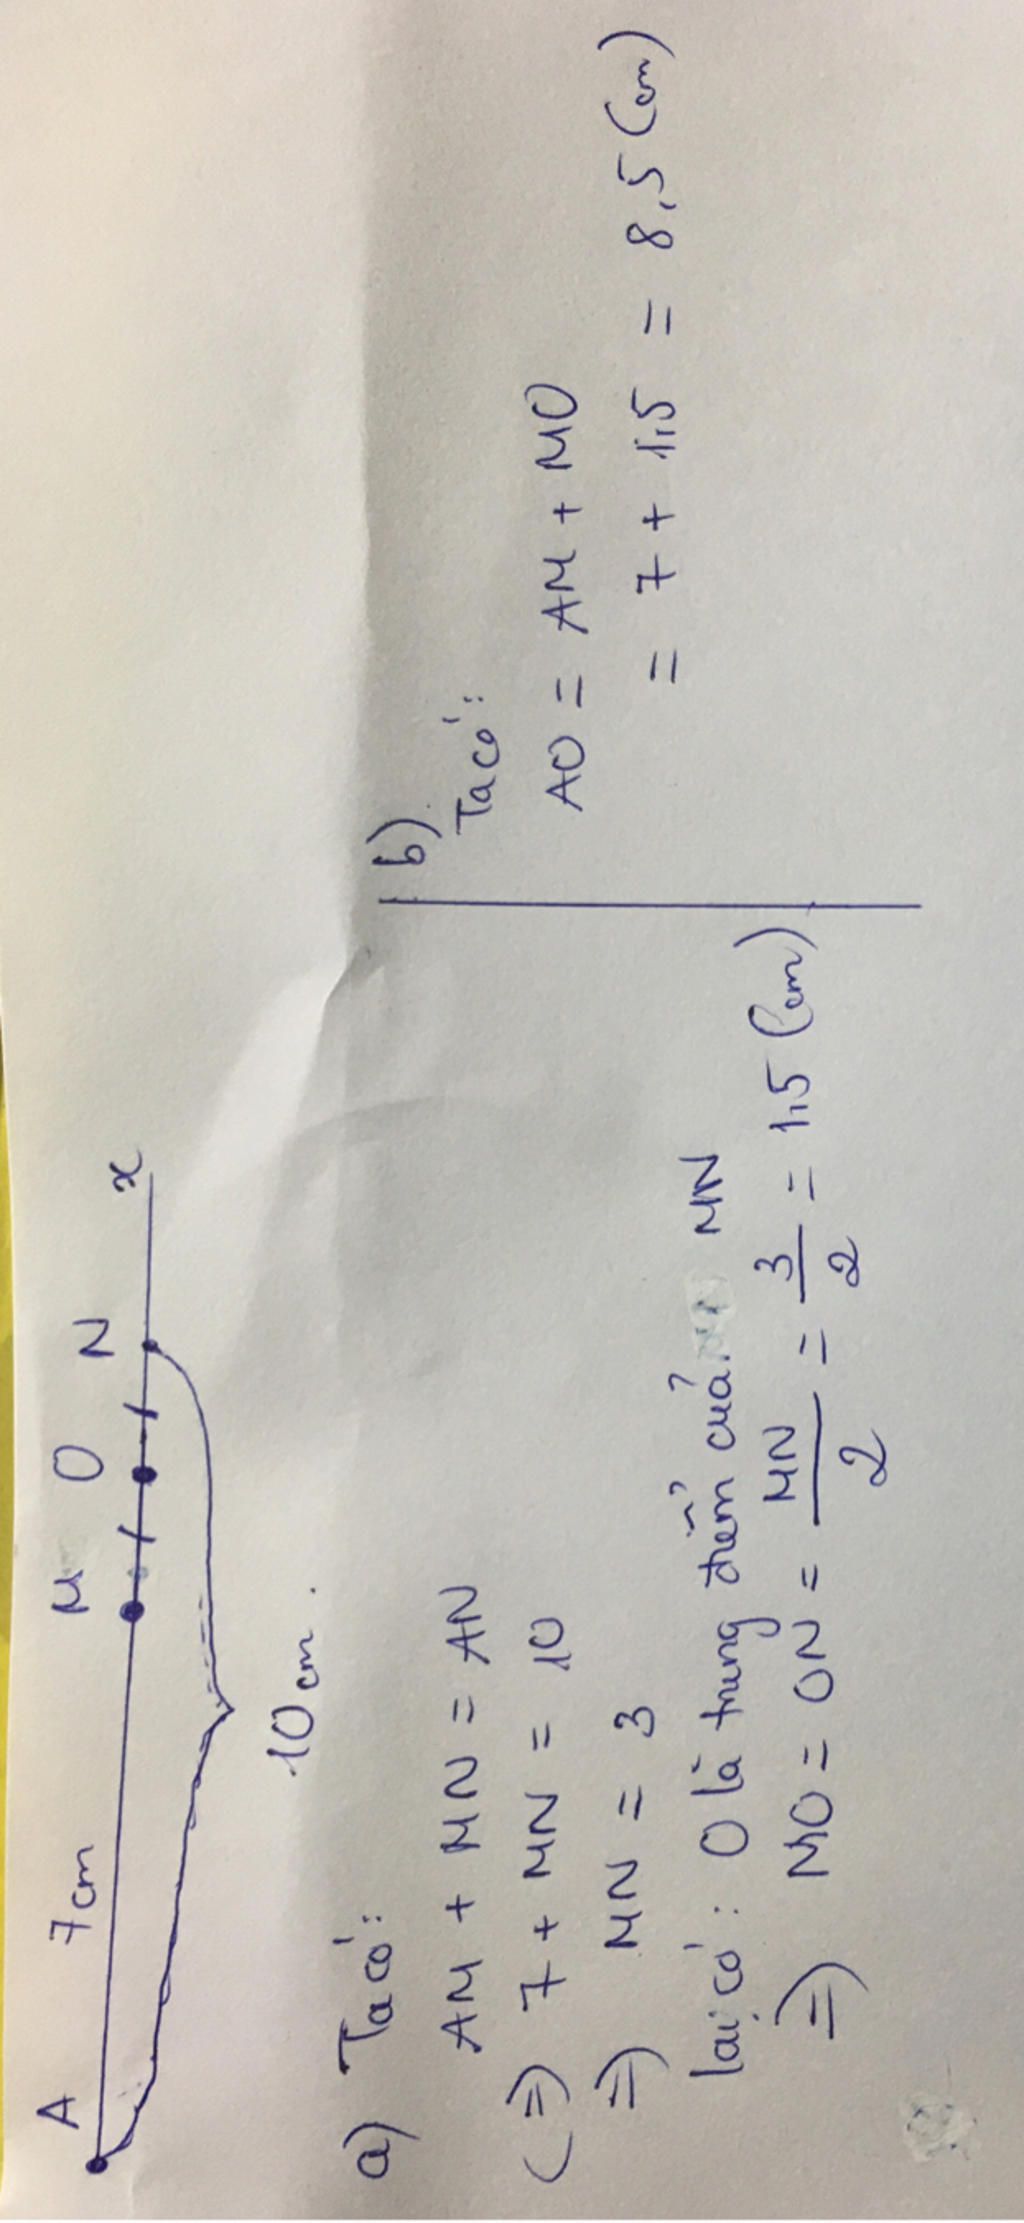 A 7cm M O N x
10 cm.
a) Ta có:
AM + MN = AN
(=) 7 + MN = 10
=) MN = 3
lại có: O là trung điểm của MN
=) MO = ON = MN/2 = 3/2 = 1,5 (cm)
b)
Ta có:
AO = AM + MO
= 7 + 1,5 = 8,5 (cm)